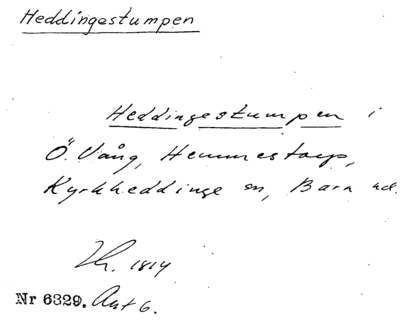 Heddingestumpen
Heddingestumpen i
Ö. Vång, Hemmestorp,
Kyrkheddinge sn, Bara hd.
1814
Nr 6329. Ant 6.